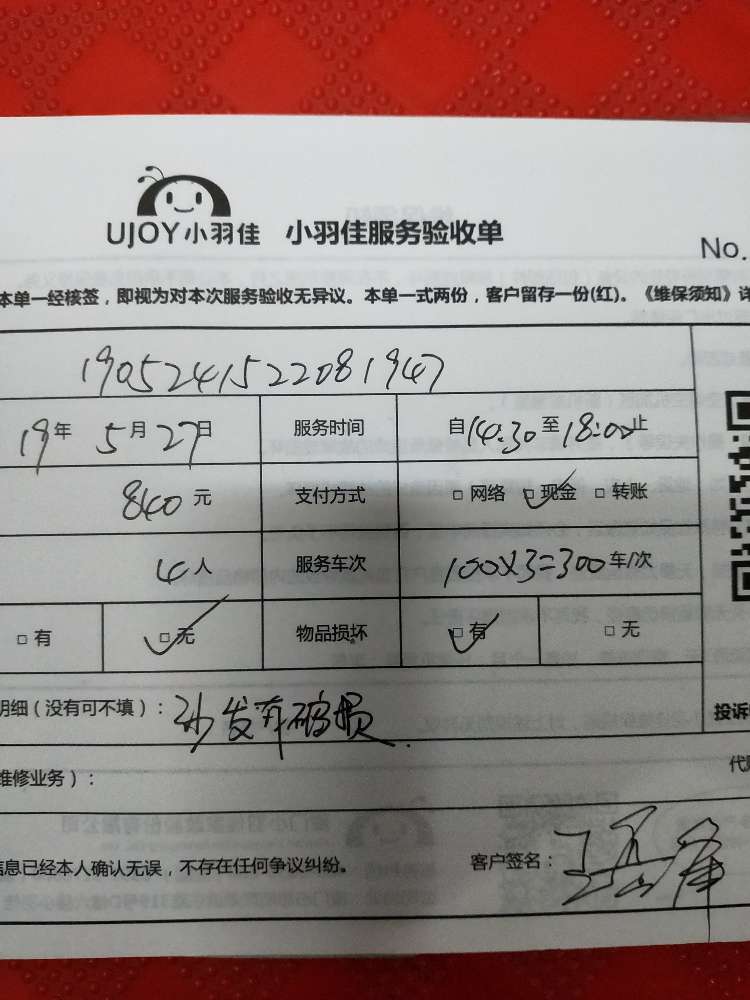 UJOY小羽佳 小羽佳服务验收单
No.
本单一经核签，即视为对本次服务验收无异议。本单一式两份，客户留存一份(红)。《维保须知》详
1905241522081947
19年 5月27日 服务时间 自14:30至18:00止
840元 支付方式 □ 网络 □ 现金 □ 转账
4人 服务车次 100×3=300车/次
□ 有 □ 无 物品损坏 □ 有 □ 无
明细（没有可不填）：沙发有破损.
投诉
维修业务）：
信息已经本人确认无误，不存在任何争议纠纷。 客户签名：